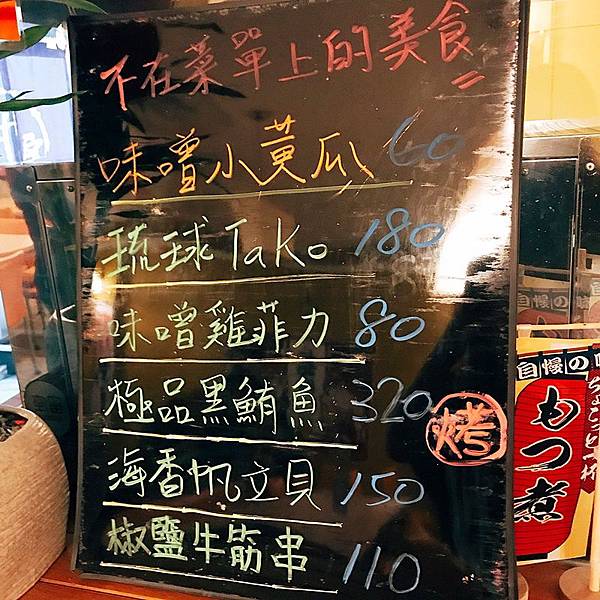 不在菜單上的美食
味噌小黃瓜 60
琉球Tako 180
味噌雞菲力 80
極品黑鮪魚 320 烤
海香帆立貝 150
椒鹽牛筋串 110
自慢の
自慢の味
もつ煮
ちょこっと一杯